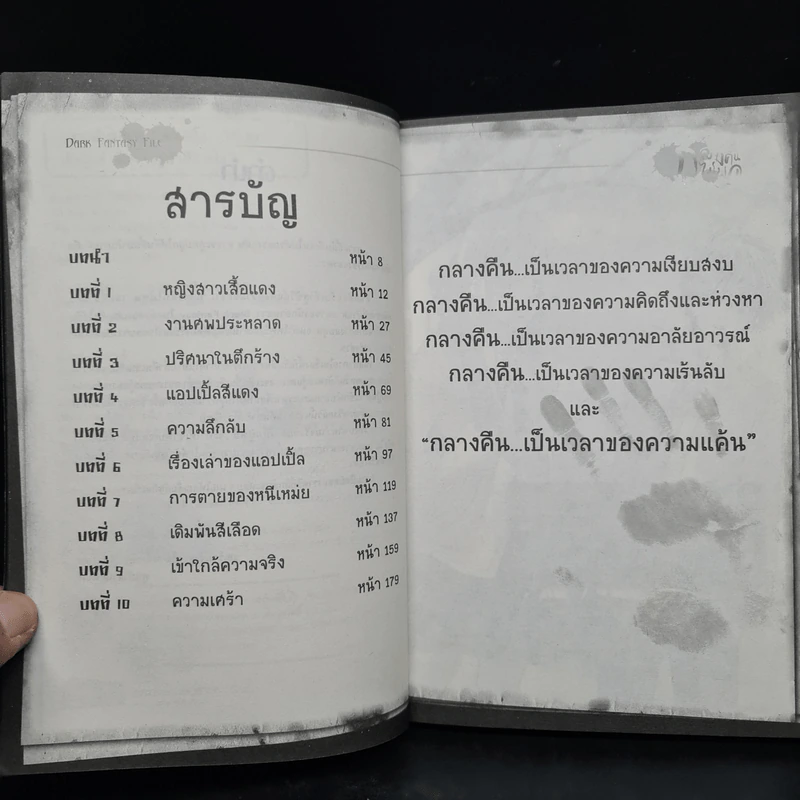 DARK FANTASY FILE
สารบัญ
บทนำ หน้า 8
บทที่ 1 หญิงสาวเสื้อแดง หน้า 12
บทที่ 2 งานศพประหลาด หน้า 27
บทที่ 3 ปริศนาในตึกร้าง หน้า 45
บทที่ 4 แอปเปิ้ลสีแดง หน้า 69
บทที่ 5 ความลึกลับ หน้า 81
บทที่ 6 เรื่องเล่าของแอปเปิ้ล หน้า 97
บทที่ 7 การตายของหนีเหม่ย หน้า 119
บทที่ 8 เดิมพันสีเลือด หน้า 137
บทที่ 9 เข้าใกล้ความจริง หน้า 159
บทที่ 10 ความเศร้า หน้า 179
กลางคืน...เป็นเวลาของความเงียบสงบ
กลางคืน...เป็นเวลาของความคิดถึงและห่วงหา
กลางคืน...เป็นเวลาของความอาลัยอาวรณ์
กลางคืน...เป็นเวลาของความเร้นลับ
และ
“กลางคืน...เป็นเวลาของความแค้น”